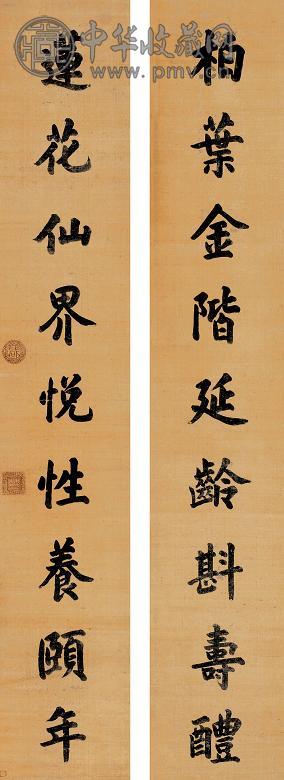 柏葉金階延齡斟壽醴
蓮花仙界悅性養頤年
中华收藏网
www.pmv.cn